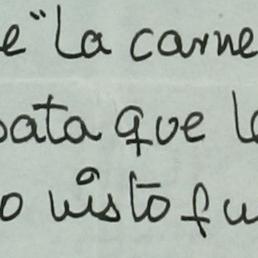 e "La carne
pata que l
o visto fu